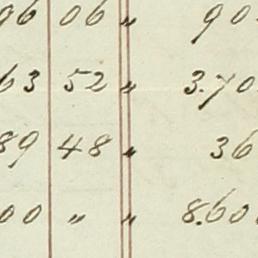 96 06 " 90
63 52 " 3.70
89 48 " 36
00 " " 8.60